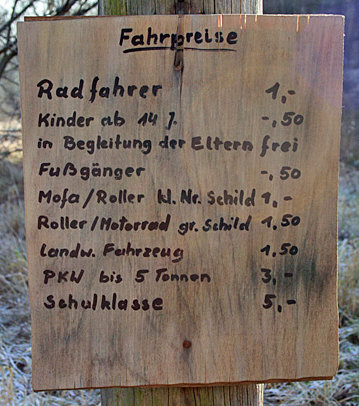 Fahrpreise
Radfahrer 1,-
Kinder ab 14 J. -,50
in Begleitung der Eltern frei
Fußgänger -,50
Mofa/Roller kl. Nr. Schild 1,-
Roller/Motorrad gr. Schild 1,50
landw. Fahrzeug 1,50
PKW bis 5 Tonnen 3,-
Schulklasse 5,-